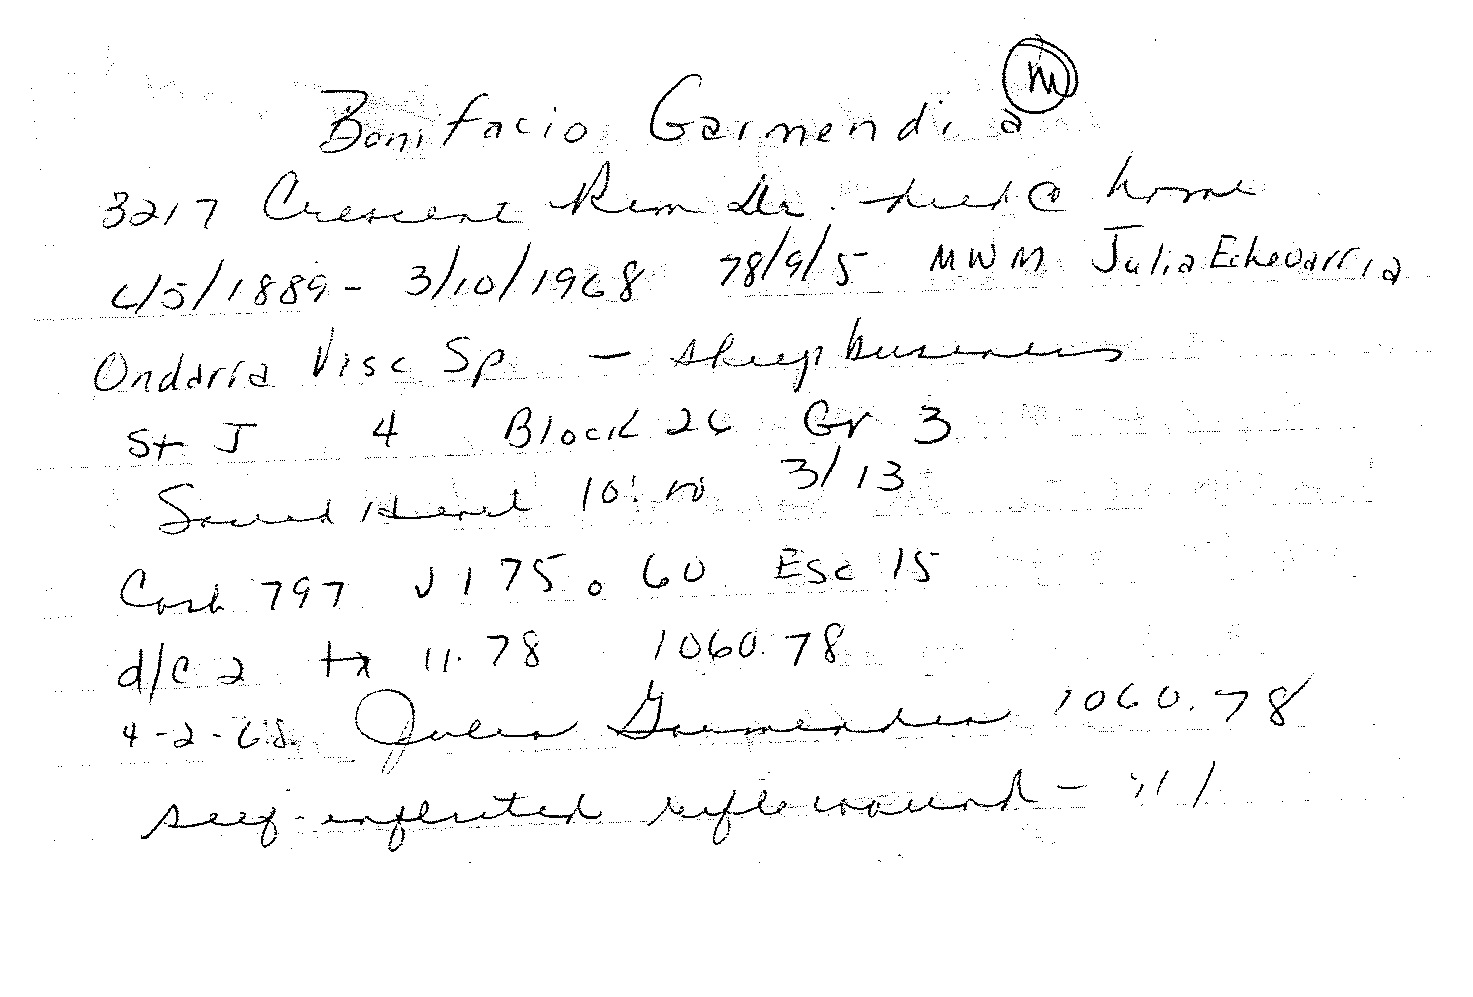 M
Bonifacio Garmendia
3217 Crescent Rim Dr. died @ home
6/5/1889 - 3/10/1968 78/9/5 MWM Julia Echevarria
Ondarra Visc Sp - sheep business
St J 4 Block 26 Gr 3
Sacred Heart 10:00 3/13
Cash 797 V 175. 60 Esc 15
d/c 2 tx 11.78 1060.78
4-2-68 Julia Garmendia 1060.78
self-inflicted rifle wound -